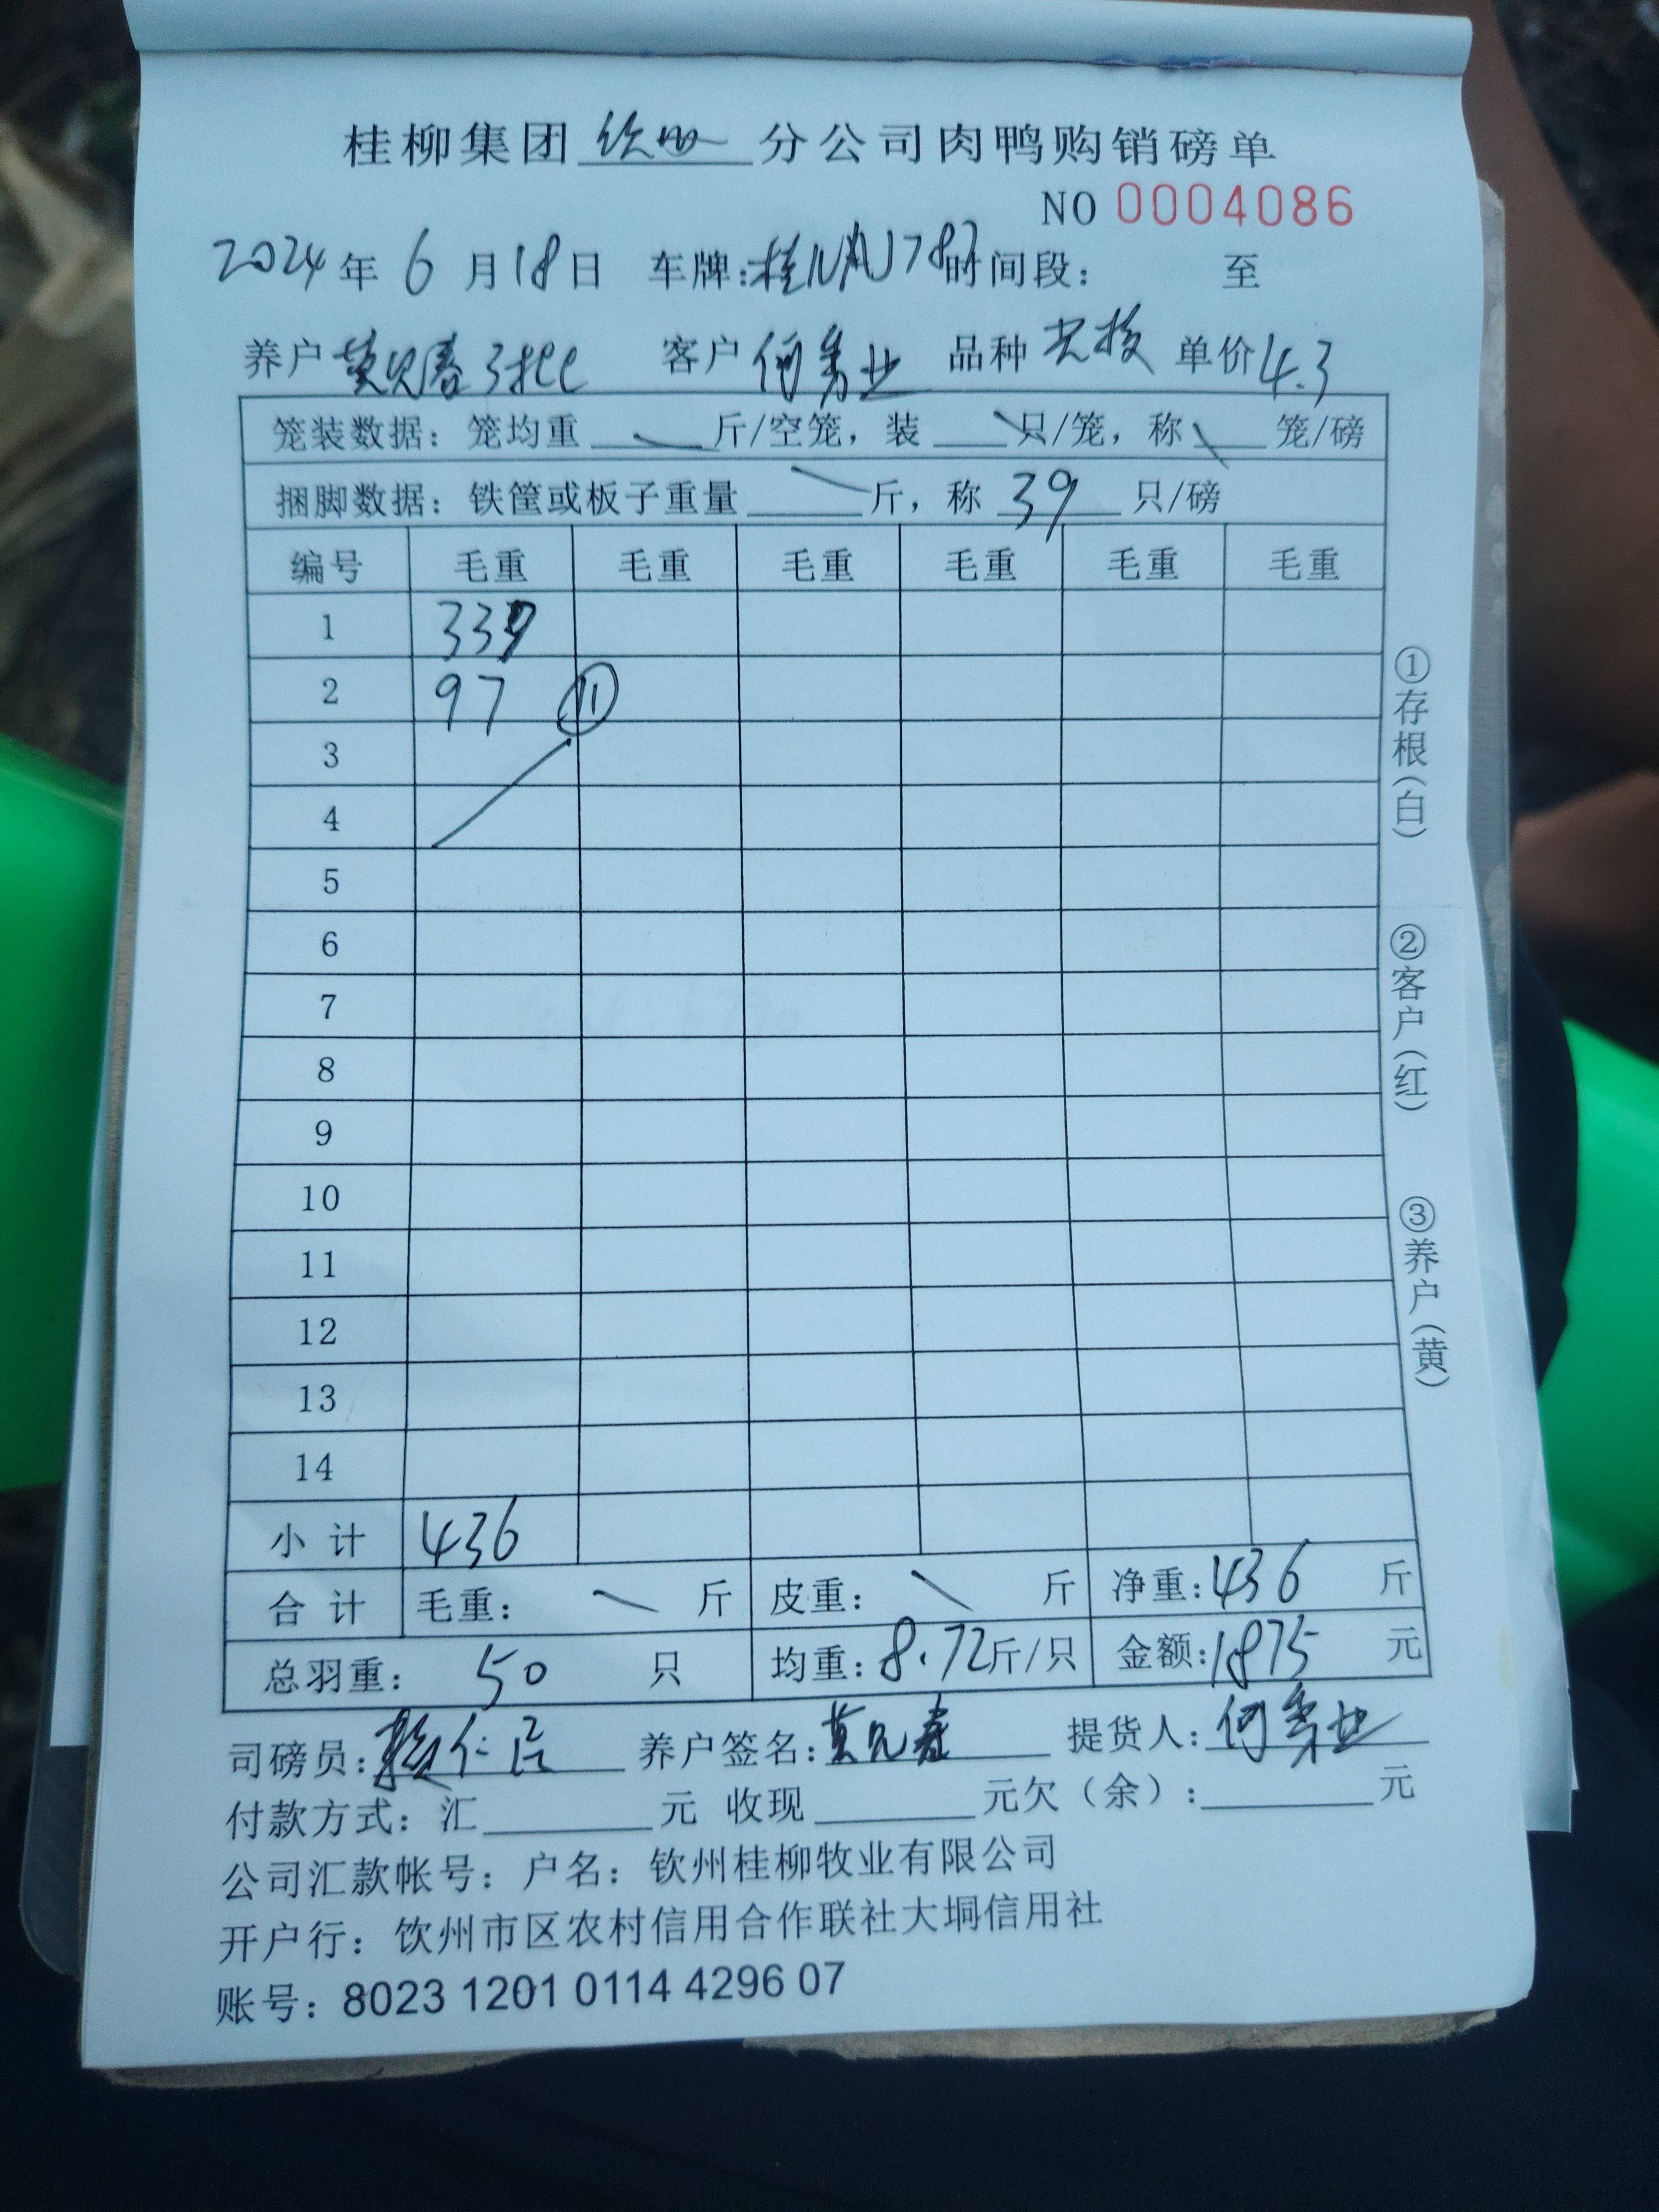 桂柳集团 钦州 分公司肉鸭购销磅单
NO 0004086
2024 年 6 月 18 日 车牌: 时间段: 至
养户 莫兄春3批 客户 何秀业 品种 单价 4.3
笼装数据: 笼均重 斤/空笼, 装 只/笼, 称 笼/磅
捆脚数据: 铁筐或板子重量 斤, 称 39 只/磅
编号 毛重 毛重 毛重 毛重 毛重 毛重
1 339
2 97 11
3
4
5
6
7
8
9
10
11
12
13
14
小计 436
合计 毛重: 斤 皮重: 斤 净重: 436 斤
总羽重: 50 只 均重: 8.72 斤/只 金额: 1875 元
司磅员: 养户签名: 莫兄春 提货人: 何秀业
付款方式: 汇 元 收现 元欠(余): 元
公司汇款帐号: 户名: 钦州桂柳牧业有限公司
开户行: 钦州市区农村信用合作联社大垌信用社
账号: 8023 1201 0114 4296 07
①存根(白)
②客户(红)
③养户(黄)